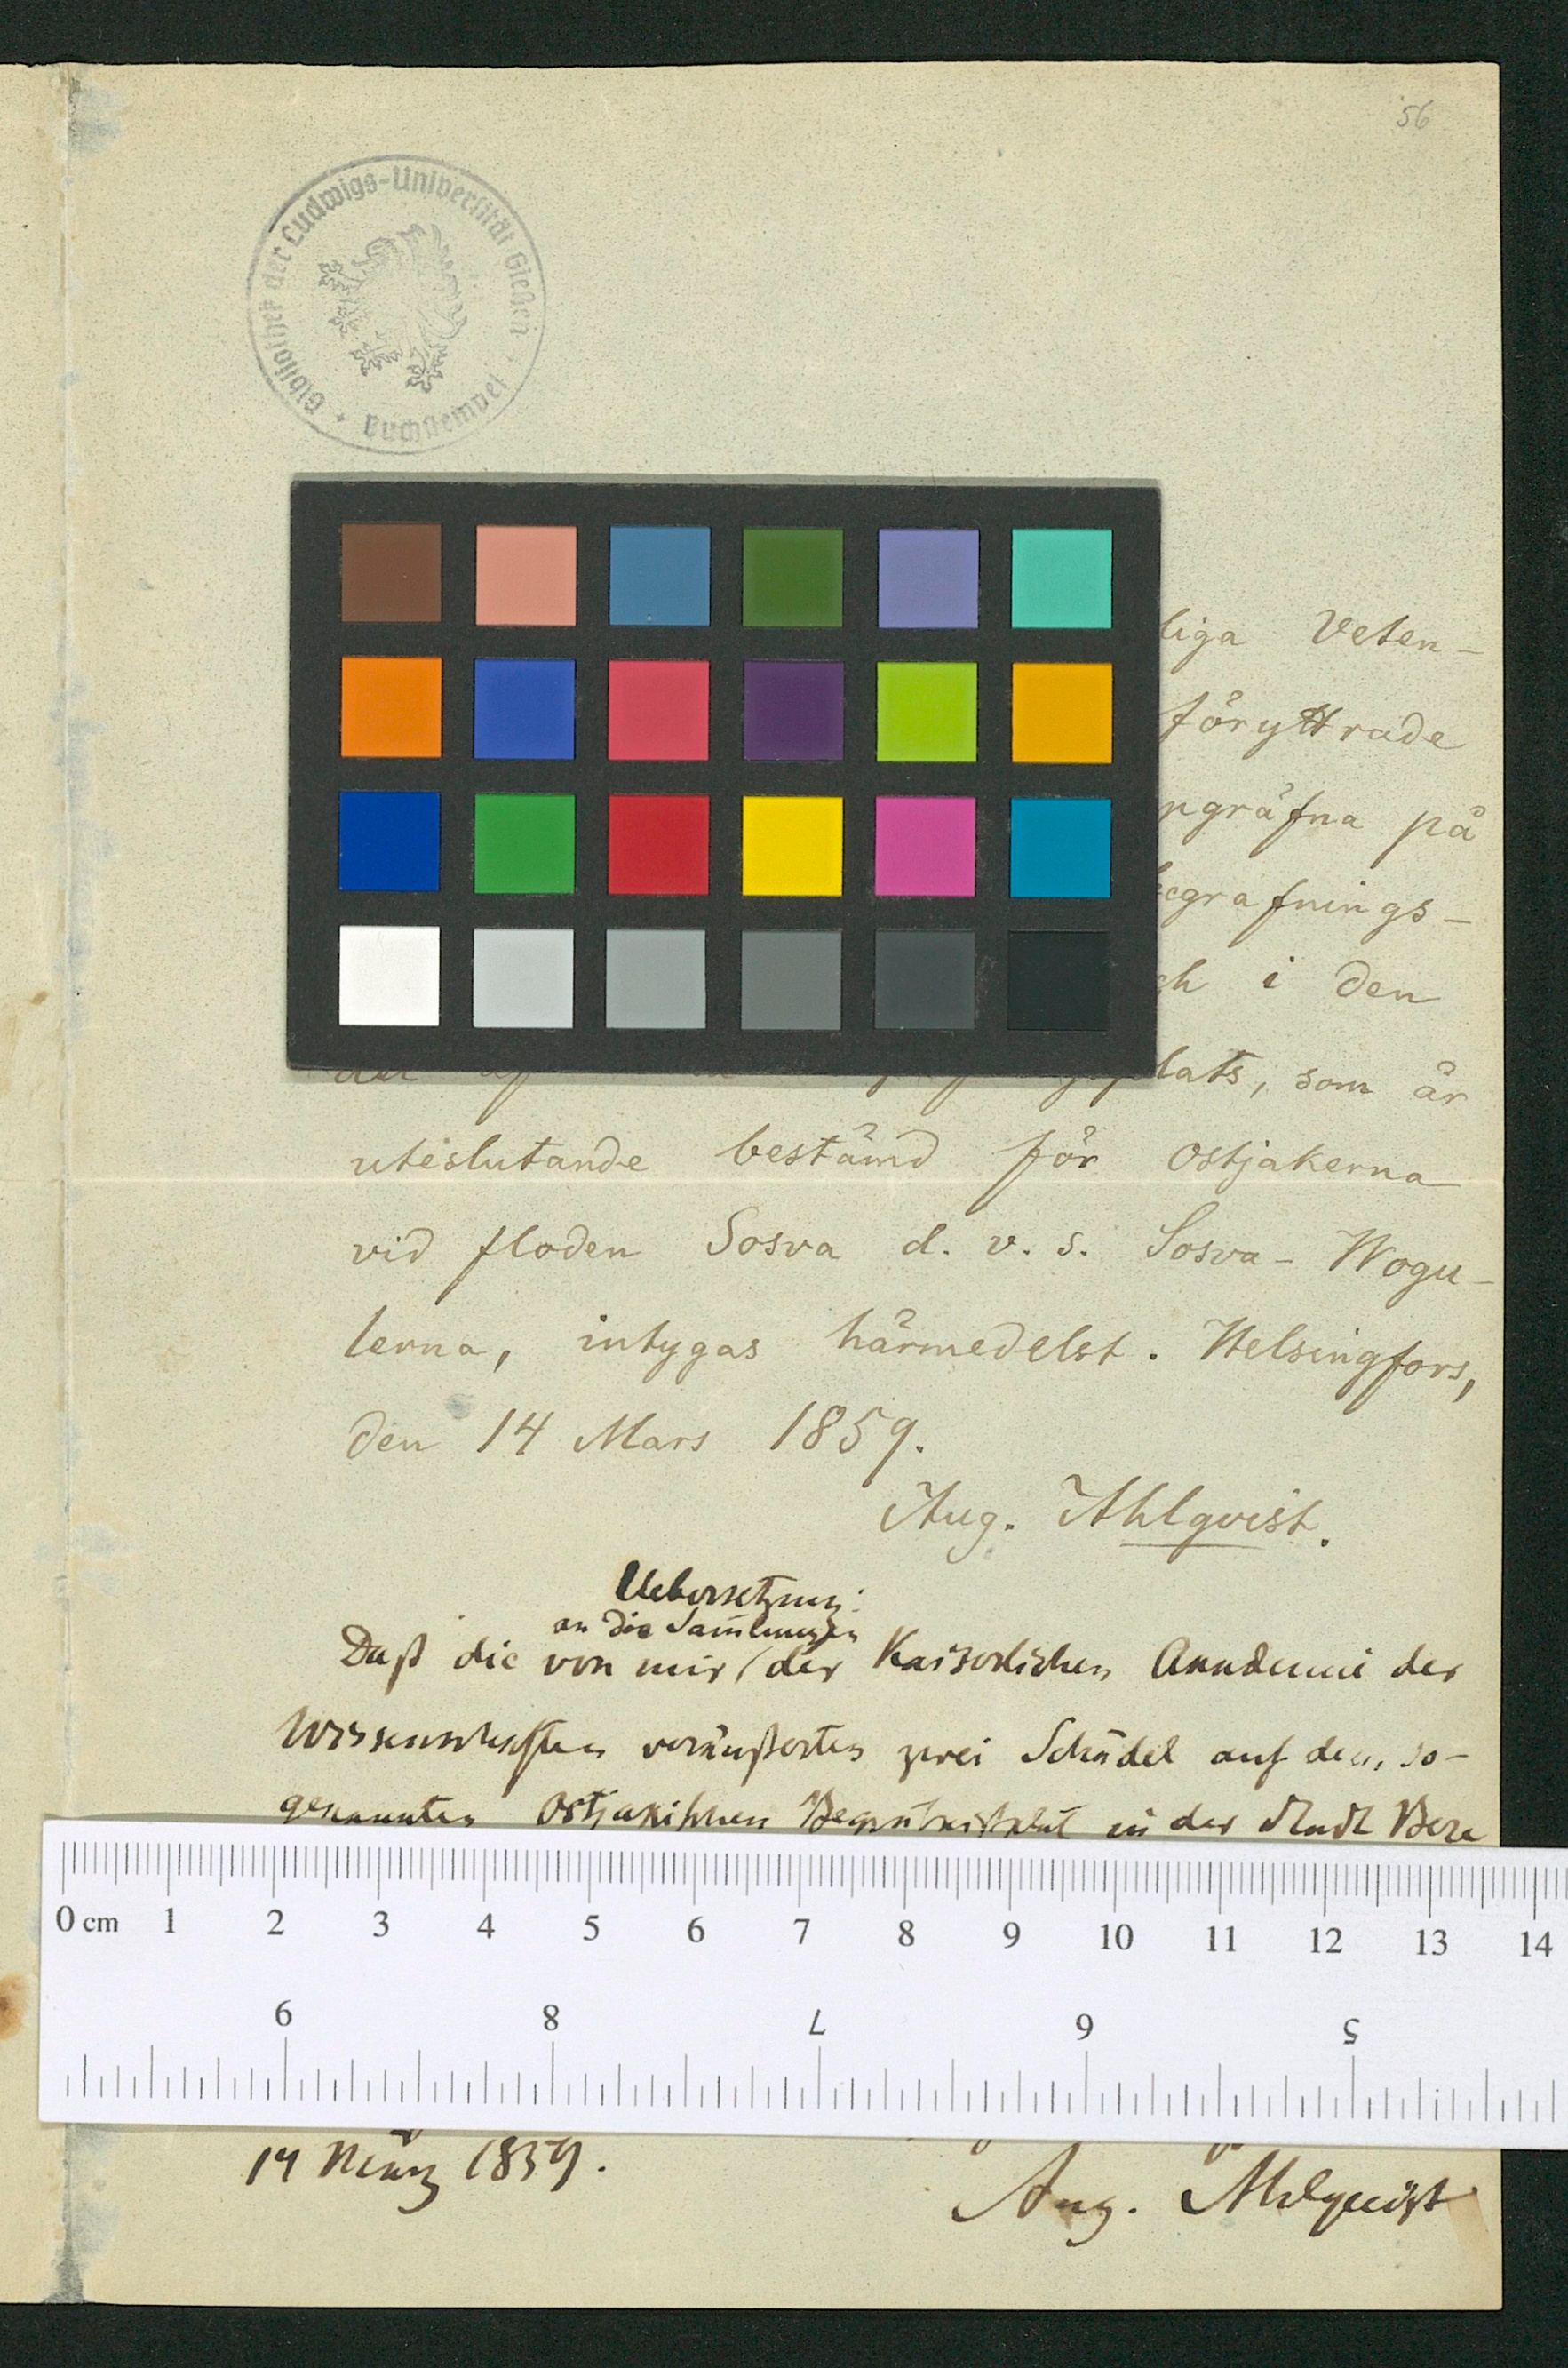 56
Bibliothek der Ludwigs-Universität Gießen
Buchstempel
liga Veten-
föryttrade
pgräfna på
begrafnings-
ch i den
lats, som är
uteslutande bestämd för Ostjakerna
vid floden Sosva d. v. s. Sosva-Wogu-
lerna, intygas härmedelst. Helsingfors,
den 14 Mars 1859.
Aug. Ahlqvist.
Uebersetzung:
an die Samlungen
Daß die von mir / der Kaiserlichen Akademie der
Wissenschaften veräußerten zwei Schädel auf dem so-
genannten Ostjakischen Begräbnisplatz in der Stadt Bere
0 cm 1 2 3 4 5 6 7 8 9 10 11 12 13 14
9 8 7 6 5
14 März 1859.
Aug. Ahlquist